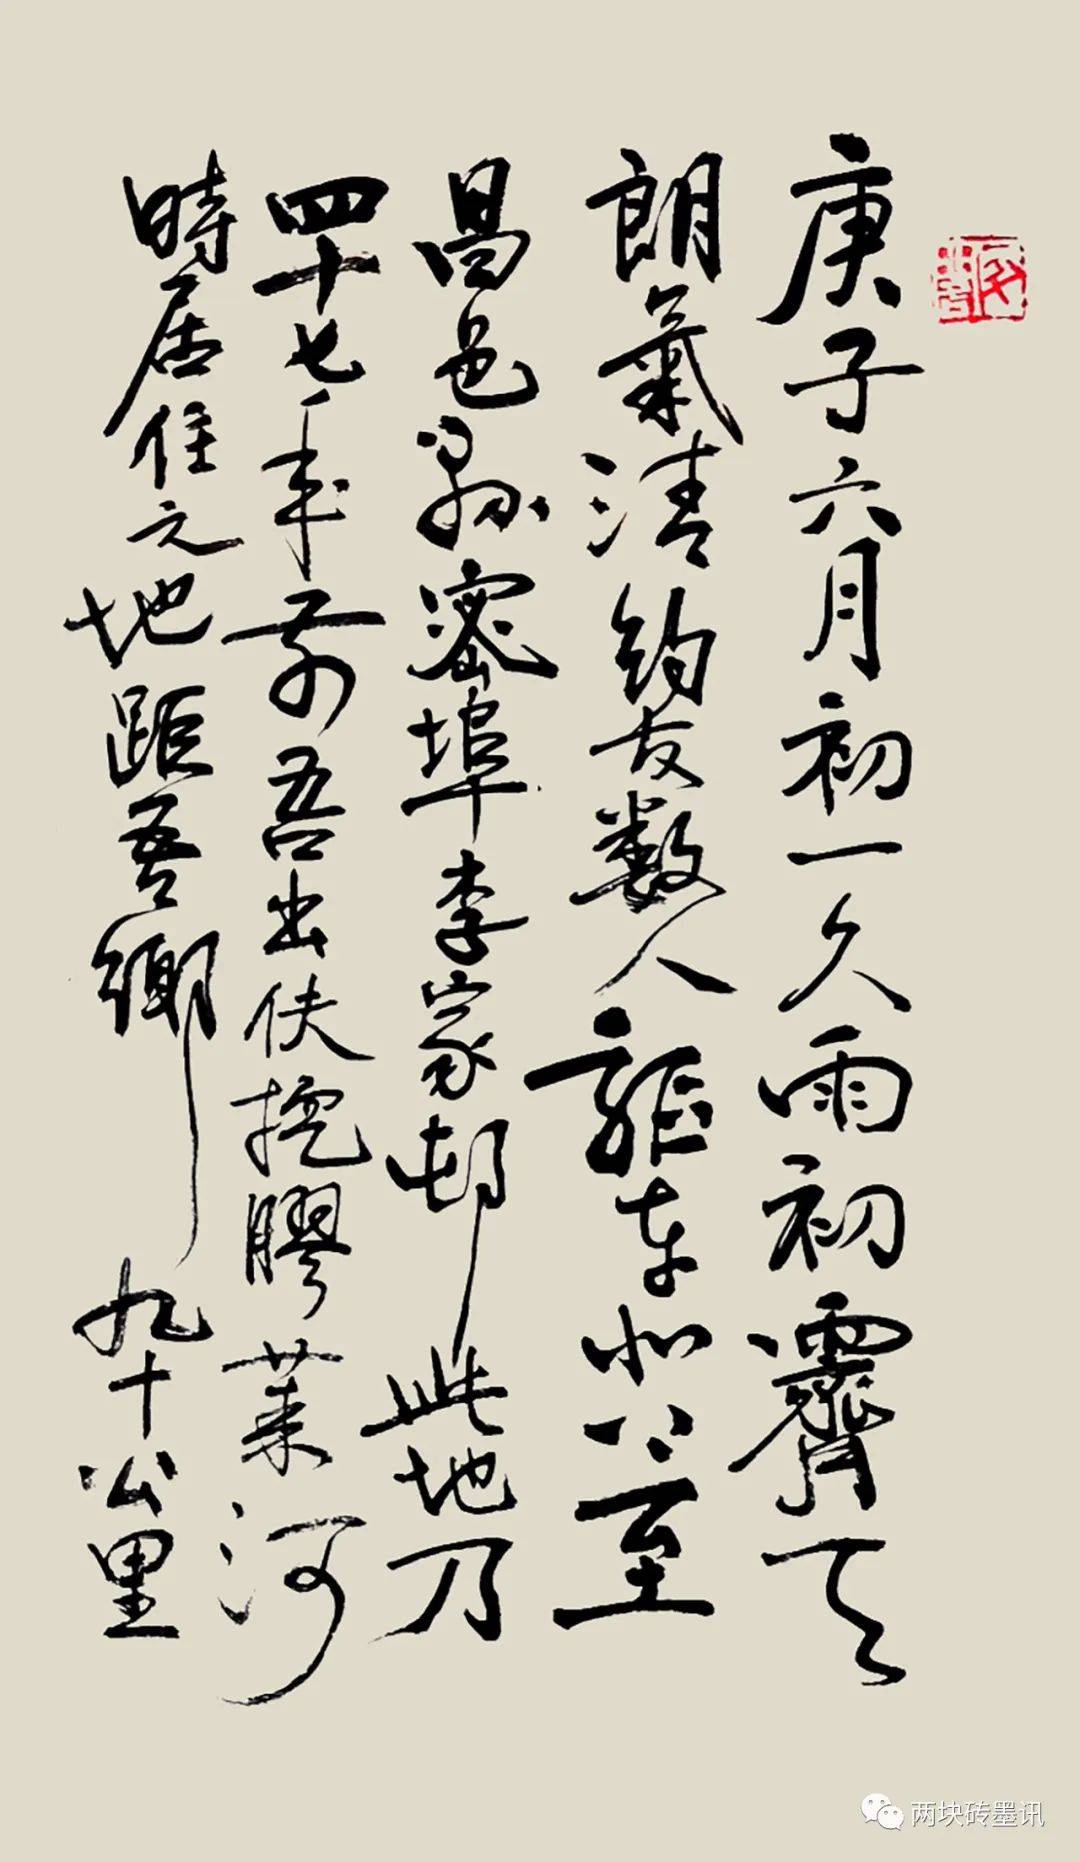 庚子六月初一久雨初霽天
朗氣清約友數人驅车北至
昌邑縣密埠李家邨此地乃
四十七年前吾出伕挖膠萊河
時居住之地距吾鄉九十公里
两块砖墨讯